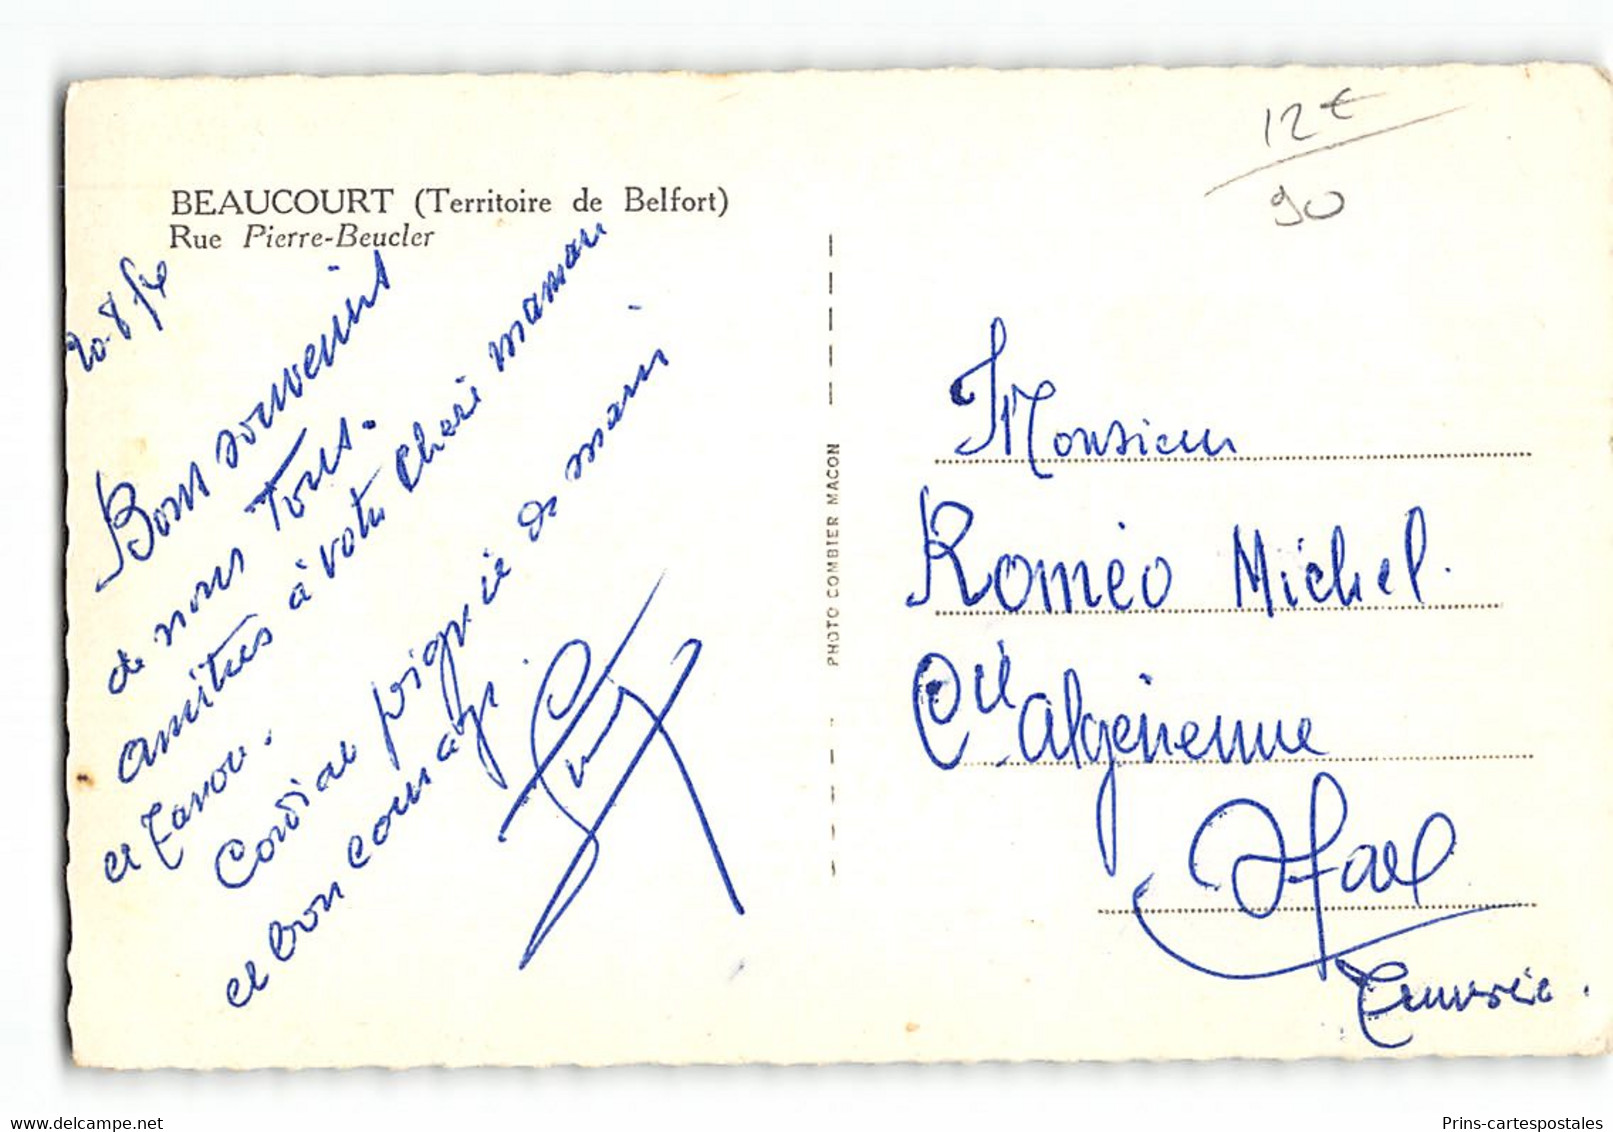 BEAUCOURT (Territoire de Belfort)
Rue Pierre-Beucler
Bons souvenirs
de nous Tous.
amitiés à votre chère maman
et
Cordiale poignée de main
et bon courage.
PHOTO COMBIER MACON
12€
90
Monsieur
Roméo Michel.
Cie algérienne
Sfax
Tunisie.
delcampe.net
Prins-cartespostales